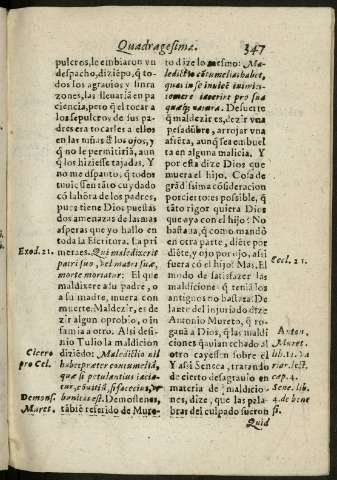 Quadragesima.
347
pulcros, le embiaron vn
despacho, diziēdo, q̃ to-
dos los agrauios y sinra
zones, las lleuariã en pa
ciencia, pero q̃ el tocar a
los sepulcros de sus pa-
dres era tocarles a ellos
en las niñas ð los ojos, y
q̃ no le permitiriã, aun
q̃ los hiziesse tajadas. Y
no me espanto, q̃ todos
tuuiessen tãto cuydado
cõ la hõra de los padres,
pues tiene Dios puestas
dos amenazas de las mas
asperas que yo hallo en
toda la Escritura. La pri
Exod. 21.
mera es. Qui maledixerit
patri suo, vel matri suæ,
morte moriatur: El que
maldixere a su padre, o
a su madre, muera con
muerte. Maldezir, es de
zir algun oprobio, o in-
famia a otro. Assi desi-
nio Tulio la maldicion
Cicero
pro Cel.
diziēdo: Maledictio nil
habet præter contumeliã,
quæ si petulantius iacia-
tur, cõuitiũ, si facetius, vr
Demost.
Maret.
banitas est. Demostenes,
tãbiē referido de Mure-
to dize lo mesmo: Ma-
ledictio cõtumelias habet,
quas in se inuicē inimi-
iomere iacerint pro sua
quæq; natura. De suerte
q̃ maldezir es, dezir vna
pesadũbre, arrojar vna
afrēta, aunq̃ sea embuel
ta en alguna malicia. Y
por esta dize Dios que
muera el hijo. Cosa de
grãdissima cõsideracion
por cierto es possible, q̃
tãto rigor quiera Dios
que aya con el hijo? No
bastaua, q̃ como mandò
en otra parte, diēte por
Eccl. 21.
diēte, y ojo por ojo, assi
fuera cõ el hijo? Mas. El
modo de satisfazer las
maldiciones q̃ teniã los
antiguos no bastaua? De
la arte del injuriado dize
Antonio Mureto, q̃ ro-
gauã a Dios, q̃ las maldi
Anton.
Muret.
ciones q̃ auian echado al
otro cayessen sobre el
lib. 11. Va
riar. lect.
cap. 4.
Y assi Seneca, tratando
de cierto desagrauio en
materia de maldicio-
Sene. lib.
4. de bene
si.
nes, dize, que las pala-
bras del culpado fueron
Quid